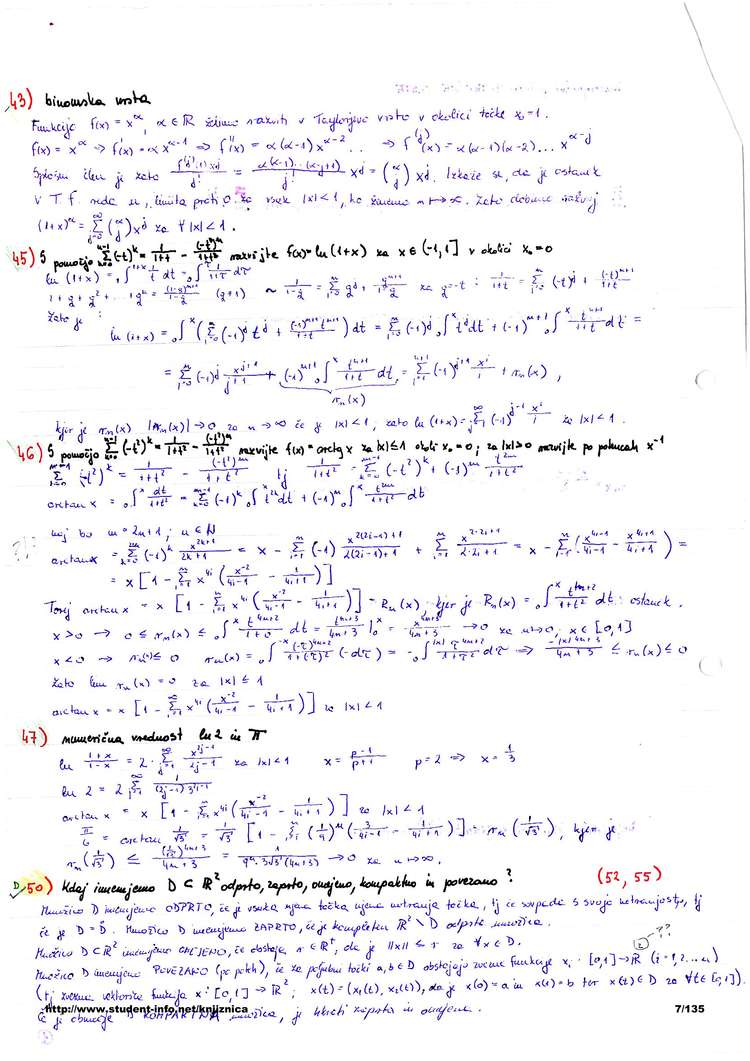 43) binomska vrsta
Funkcijo f(x) = x^α, α ∈ ℝ želimo razviti v Taylorjevo vrsto v okolici točke x₀ = 1.
f(x) = x^α ⇒ f'(x) = α x^{α-1} ⇒ f''(x) = α(α-1) x^{α-2} ... ⇒ f^{(j)}(x) = α(α-1)(α-2)... x^{α-j}
Splošni člen je zato f^{(j)}(1) x^j / j! = α(α-1)...(α-j+1) / j! x^j = (α j) x^j. Izkaže se, da je ostanek
v T.f. reda n, limita proti 0 za vsak |x|<1, ko ženemo n → ∞. Zato dobimo razvoj
(1+x)^α = Σ_{j=0}^∞ (α j) x^j za ∀ |x|<1.
45) S pomočjo Σ_{k=0}^{n-1} (-t)^k = razvijte f(x) = ln(1+x) za x ∈ (-1,1] v okolici x₀ = 0
ln(1+x) =
1 + q + q² + ... + q^n (q≠1) ~ za q = -t :
Zato je :
ln(1+x) = ₀∫^x ( Σ_{j=0}^n (-1)^j t^j + (-1)^{n+1} t^{n+1} / (1+t) ) dt = Σ_{j=0}^n (-1)^j ₀∫^x t^j dt + (-1)^{n+1} ₀∫^x t^{n+1} / (1+t) dt =
= Σ_{j=0}^n (-1)^j x^{j+1} / (j+1) + (-1)^{n+1} ₀∫^x t^{n+1} / (1+t) dt = Σ_{j=1}^{n+1} (-1)^{j+1} x^j / j + r_n(x) ,
r_n(x)
kjer je r_n(x) |r_n(x)| → 0 za n → ∞ če je |x|<1, zato ln(1+x) = Σ_{j=1}^∞ (-1)^{j-1} x^j / j za |x|<1.
46) S pomočjo Σ_{k=0}^{n-1} (-t²)^k = 1/(1+t²) - (-t²)^n/(1+t²) razvijte f(x) = arctg x za |x|≤1 okoli x₀ = 0; za |x|>0 razvijte po potencah x^{-1}
Σ (-t²)^k = 1/(1+t²) - (-t²)^m/(1+t²) tj 1/(1+t²) = Σ_{k=0}^{m-1} (-t²)^k + (-1)^m t^{2m}/(1+t²)
arctan x = ₀∫^x dt/(1+t²) = Σ_{k=0}^{m-1} (-1)^k ₀∫^x t^{2k} dt + (-1)^m ₀∫^x t^{2m}/(1+t²) dt
naj bo m = 2n+1 ; n ∈ ℕ
arctan x = Σ (-1)^k x^{2k+1}/(2k+1) = x - Σ (-1) x^{2(2i-1)+1}/(2(2i-1)+1) + Σ x^{2·2i+1}/(2·2i+1) = x - Σ ( x^{4i-1}/(4i-1) - x^{4i+1}/(4i+1) ) =
= x [ 1 - Σ_{i=1}^n x^{4i} ( x^{-2}/(4i-1) - 1/(4i+1) ) ]
Torej arctan x = x [ 1 - Σ_{i=1}^n x^{4i} ( x^{-2}/(4i-1) - 1/(4i+1) ) ] - R_n(x), kjer je R_n(x) = ₀∫^x t^{4n+2}/(1+t²) dt ostanek.
x>0 → 0 ≤ r_n(x) ≤ ₀∫^x t^{4n+2}/(1+0) dt = t^{4n+3}/(4n+3) |₀^x = x^{4n+3}/(4n+3) → 0 za n→∞, x ∈ [0,1]
x<0 → r_n(x) ≤ 0 r_n(x) = ₀∫^{-x} (-τ)^{4n+2}/(1+(τ)²) (-dτ) = -₀∫^{|x|} τ^{4n+2}/(1+τ²) dτ ⇒ -|x|^{4n+3}/(4n+3) ≤ r_n(x) ≤ 0
Zato lim r_n(x) = 0 za |x| ≤ 1
arctan x = x [ 1 - Σ_{i=1}^∞ x^{4i} ( x^{-2}/(4i-1) - 1/(4i+1) ) ] za |x|<1
47) numerična vrednost ln 2 in π
ln (1+x)/(1-x) = 2 · Σ_{j=1}^∞ x^{2j-1}/(2j-1) za |x|<1 x = (p-1)/(p+1) p=2 ⇒ x = 1/3
ln 2 = 2 Σ_{j=1}^∞ 1/((2j-1) 3^{2j-1})
arctan x = x [ 1 - Σ x^{4i} ( x^{-2}/(4i-1) - 1/(4i+1) ) ] za |x|<1
π/6 = arctan 1/√3 = 1/√3 [ 1 - Σ (1/9)^n ( 3/(4i-1) - 1/(4i+1) ) ] - r_n(1/√3), kjer je
r_n(1/√3) ≤ (1/√3)^{4n+3}/(4n+3) = 1/(9^n · 3√3 (4n+3)) → 0 za n→∞.
D 50) Kdaj imenujemo D ⊂ ℝ² odprto, zaprto, omejeno, kompaktno in povezano? (52, 55)
Množico D imenujemo ODPRTO, če je vsaka njena točka njena notranja točka, tj če sovpada s svojo notranjostjo, tj
če je D = D̊. Množico D imenujemo ZAPRTO, če je komplement ℝ² \ D odprta množica.
Množico D ⊂ ℝ² imenujemo OMEJENO, če obstaja r ∈ ℝ⁺, da je ||x|| ≤ r za ∀x ∈ D.
Množico D imenujemo POVEZANO (po poteh), če za poljubni točki a, b ∈ D obstajajo zvezne funkcije x_i : [0,1] → ℝ (i = 1,2...n)
(tj zvezna vektorska funkcija x : [0,1] → ℝ² ; x(t) = (x₁(t), x₂(t)), da je x(0) = a in x(1) = b ter x(t) ∈ D za ∀t ∈ [0,1]).
http://www.student-info.net/knjiznica 7/135
D KOMPAKTNA množica, je hkrati zaprta in omejena.